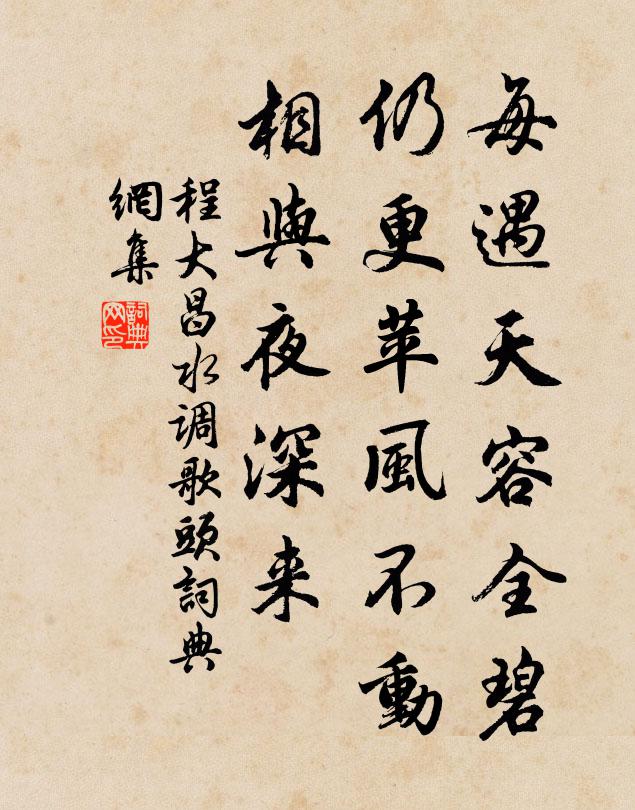 每遇天容全碧
仍更苹風不動
相與夜深来
程大昌水调歌頭詞典
網集
詞典
网印